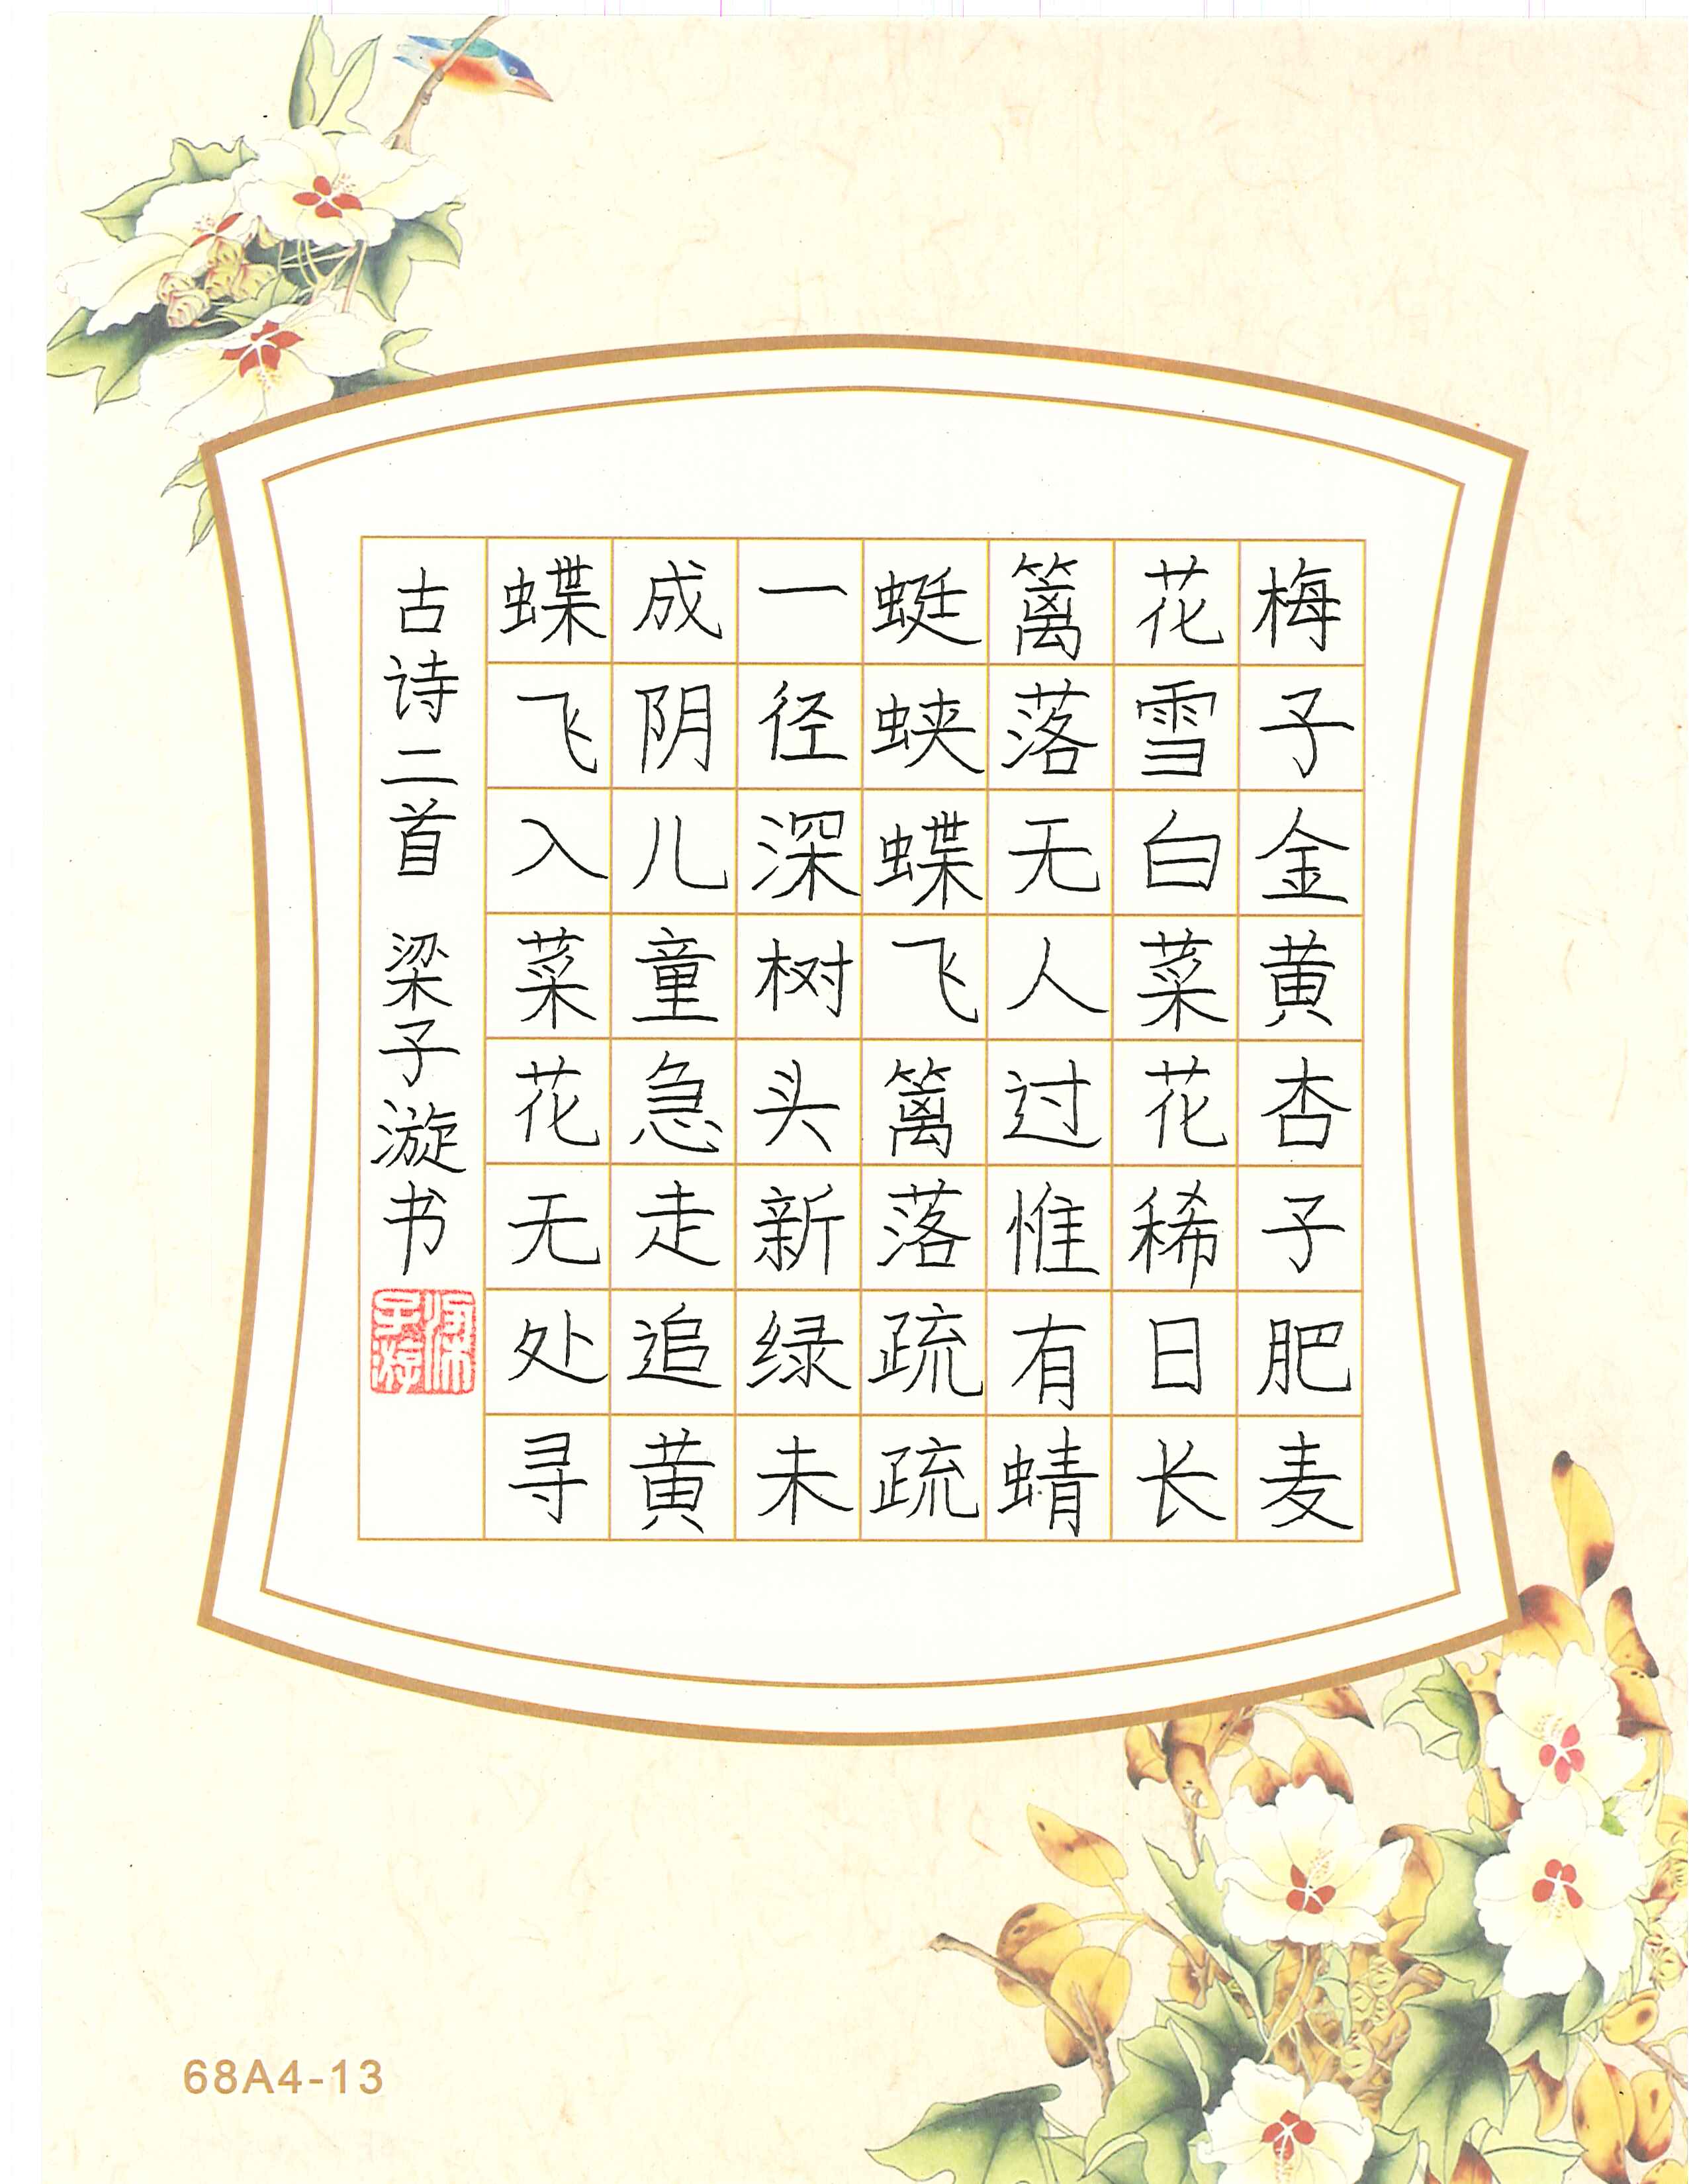 梅子金黄杏子肥麦
花雪白菜花稀日长
篱落无人过惟有蜻
蜓蛱蝶飞篱落疏疏
一径深树头新绿未
成阴儿童急走追黄
蝶飞入菜花无处寻
古诗二首 梁子漩书
68A4-13